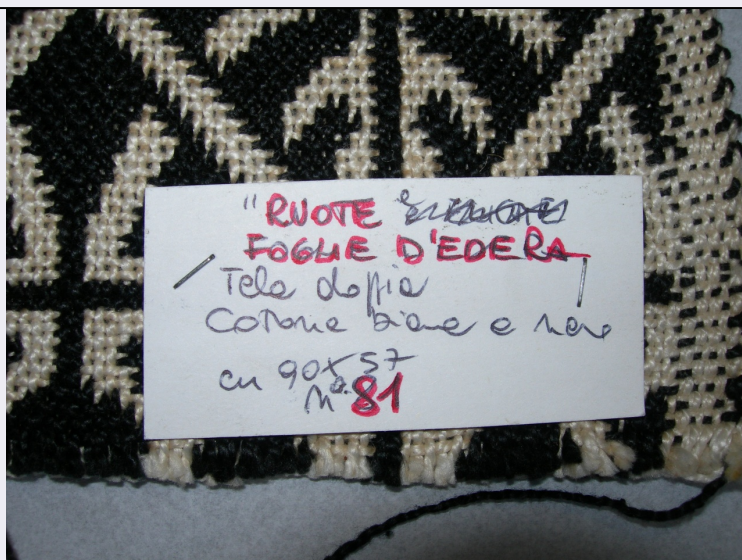 "RUOTE e
FOGLIE D'EDERA
Tela doppia
Cotone bianco e nero
cm 90x57
n° 81